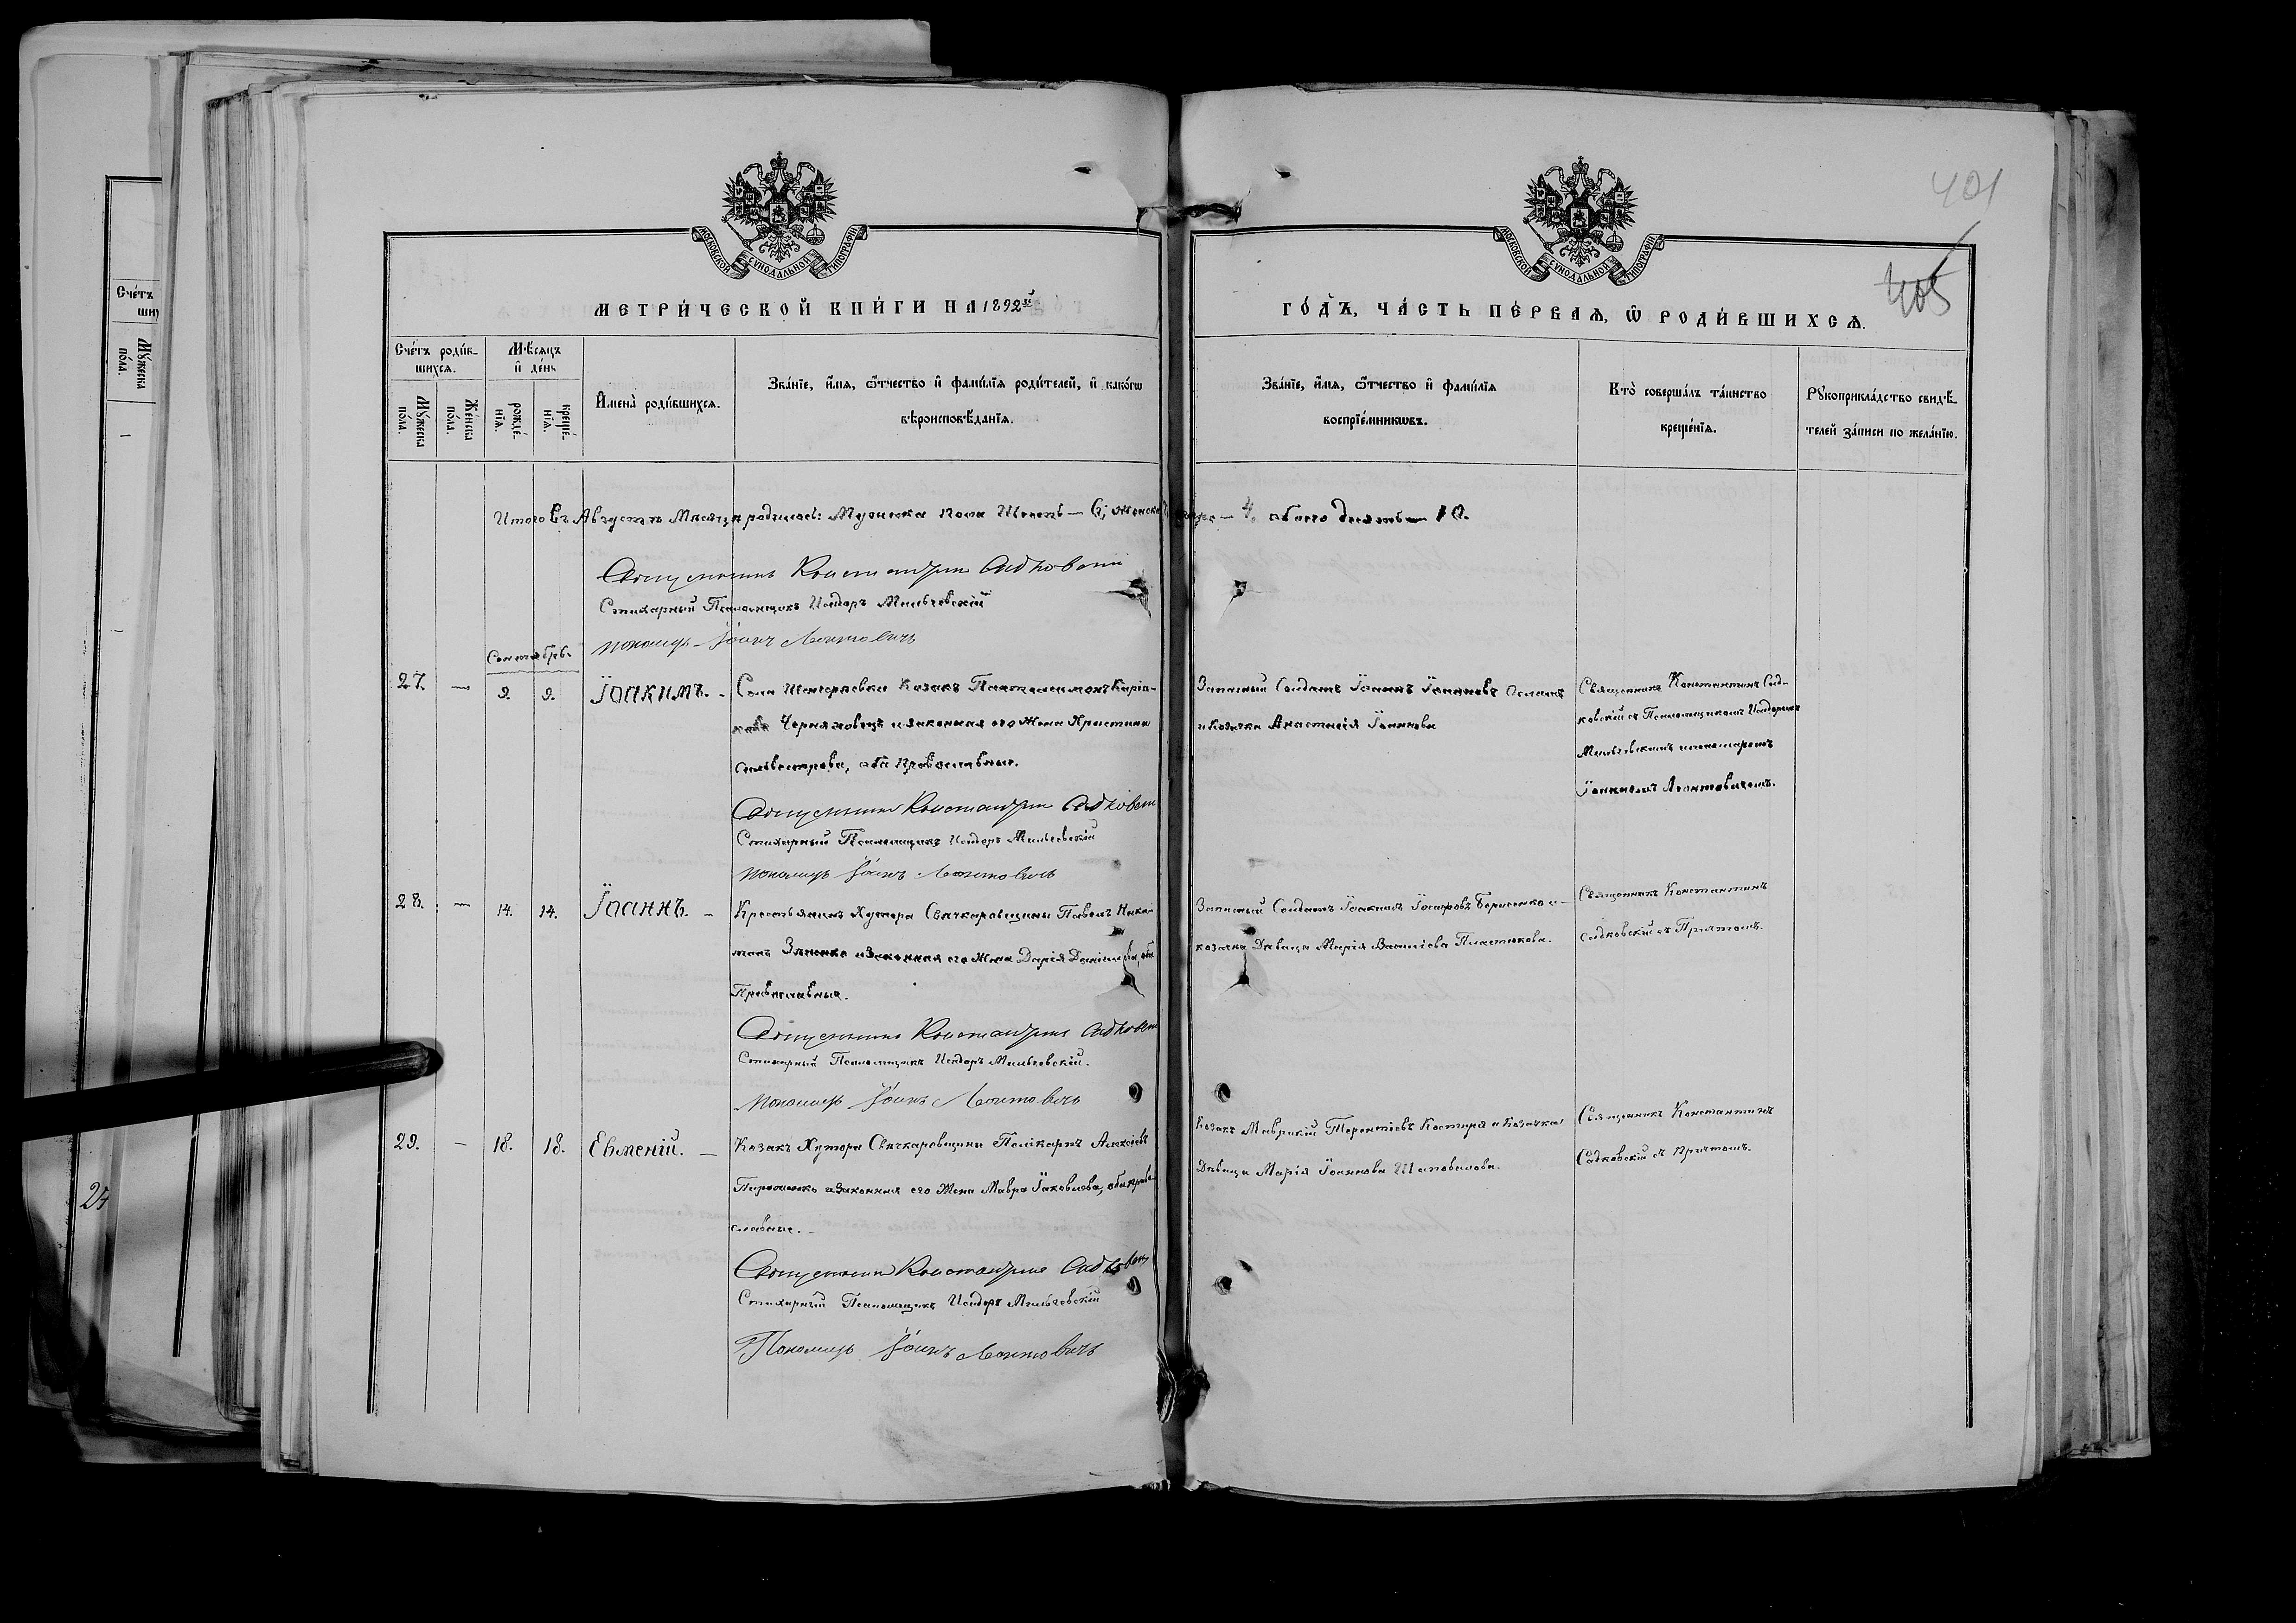 401
405
МОСКОВСКОЙ СѴНОДАЛЬНОЙ ТИПОГРАФІИ
МОСКОВСКОЙ СѴНОДАЛЬНОЙ ТИПОГРАФІИ
МЕТРИ́ЧЕСКОЙ КНИ́ГИ НА 1892й
ГО́ДЪ, ЧА́СТЬ ПЕ́РВАѦ, Ѽ РОДИ́ВШИХСѦ.
Сче́тъ роди́в-
шихсѧ.
Мꙋ́жеска по́ла.
Же́нска по́ла.
Мѣ́сѧцъ и҆ де́нь
рожде́-нїѧ.
креще́-нїѧ.
И҆мена̀ роди́вшихсѧ.
Зва́нїе, и҆́мѧ, ѻ҆́тчество и҆ фами́лїѧ роди́телей, и҆ како́гѡ
вѣроисповѣ́данїѧ.
Зва́нїе, и҆́мѧ, ѻ҆́тчество и҆ фами́лїѧ
воспрїе́мникѡвъ.
Кто̀ соверша́лъ та́инство
креще́нїѧ.
Рꙋкоприкла́дство свидѣ́-
телей за́писи по жела́нїю.
Итого въ Августѣ Мѣсяцѣ родилось: Мужеска пола Шесть — 6; женска — 4, обоего десять — 10.
Священникъ Константинъ Садковскій
Стихарный Псаломщикъ Исидоръ Мильгевскій
пономарь Іоаннъ Леонтовичъ
Сентябрь
27. — 9. 9. Іоакимъ. - Села казакъ Пантелеимонъ Киріа-
ковъ Черняховецъ и законная его Жена Христина
Сильвестрова, оба Православные.
Запасный Солдатъ Іоаннъ Іоанновъ
и Козачка Анастасія Іоаннова
Священникъ Константинъ Сад-
ковскій съ Псаломщикомъ Исидоромъ
Мильгевскимъ и пономаремъ
Іоанномъ Леонтовичемъ.
Священникъ Константинъ Садковскій
Стихарный Псаломщикъ Исидоръ Мильгевскій
пономарь Іоаннъ Леонтовичъ
28. — 14. 14. Іоаннъ. — Крестьянинъ Хутора Свѣчкаровщины Павелъ
Зѣненко и законная его Жена Дарія Даніилова, оба
Православные.
Запасный Солдатъ Іоакимъ Іосифовъ Борисенко и —
козачка Дѣвица Марія Василіева Пластюкова.
Священникъ Константинъ
Садковскій съ Причтомъ.
Священникъ Константинъ Садковскій
Стихарный Псаломщикъ Исидоръ Мильгевскій.
Пономарь Іоаннъ Леонтовичъ
29. — 18. 18. Евменій. — Козакъ Хутора Свѣчкаровщины Поликарпъ Алексіевъ
и законная его Жена Мавра Іаковлева, оба право-
славные. —
Козакъ Маврикій Терентіевъ Костиря и Козачка
Дѣвица Марія Іоаннова Шаповалова.
Священникъ Константинъ
Садковскій съ причтомъ.
Священникъ Константинъ Садковскій
Стихарный Псаломщикъ Исидоръ Мильгевскій
Пономарь Іоаннъ Леонтовичъ
Сче́тъ
Мꙋ́жеска по́ла.
24